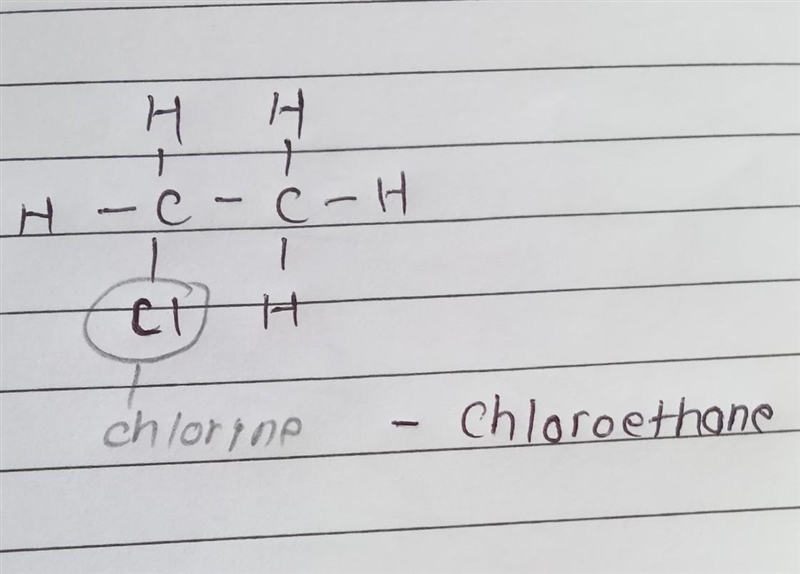 H H
H - C - C - H
Cl H
chlorine - Chloroethane